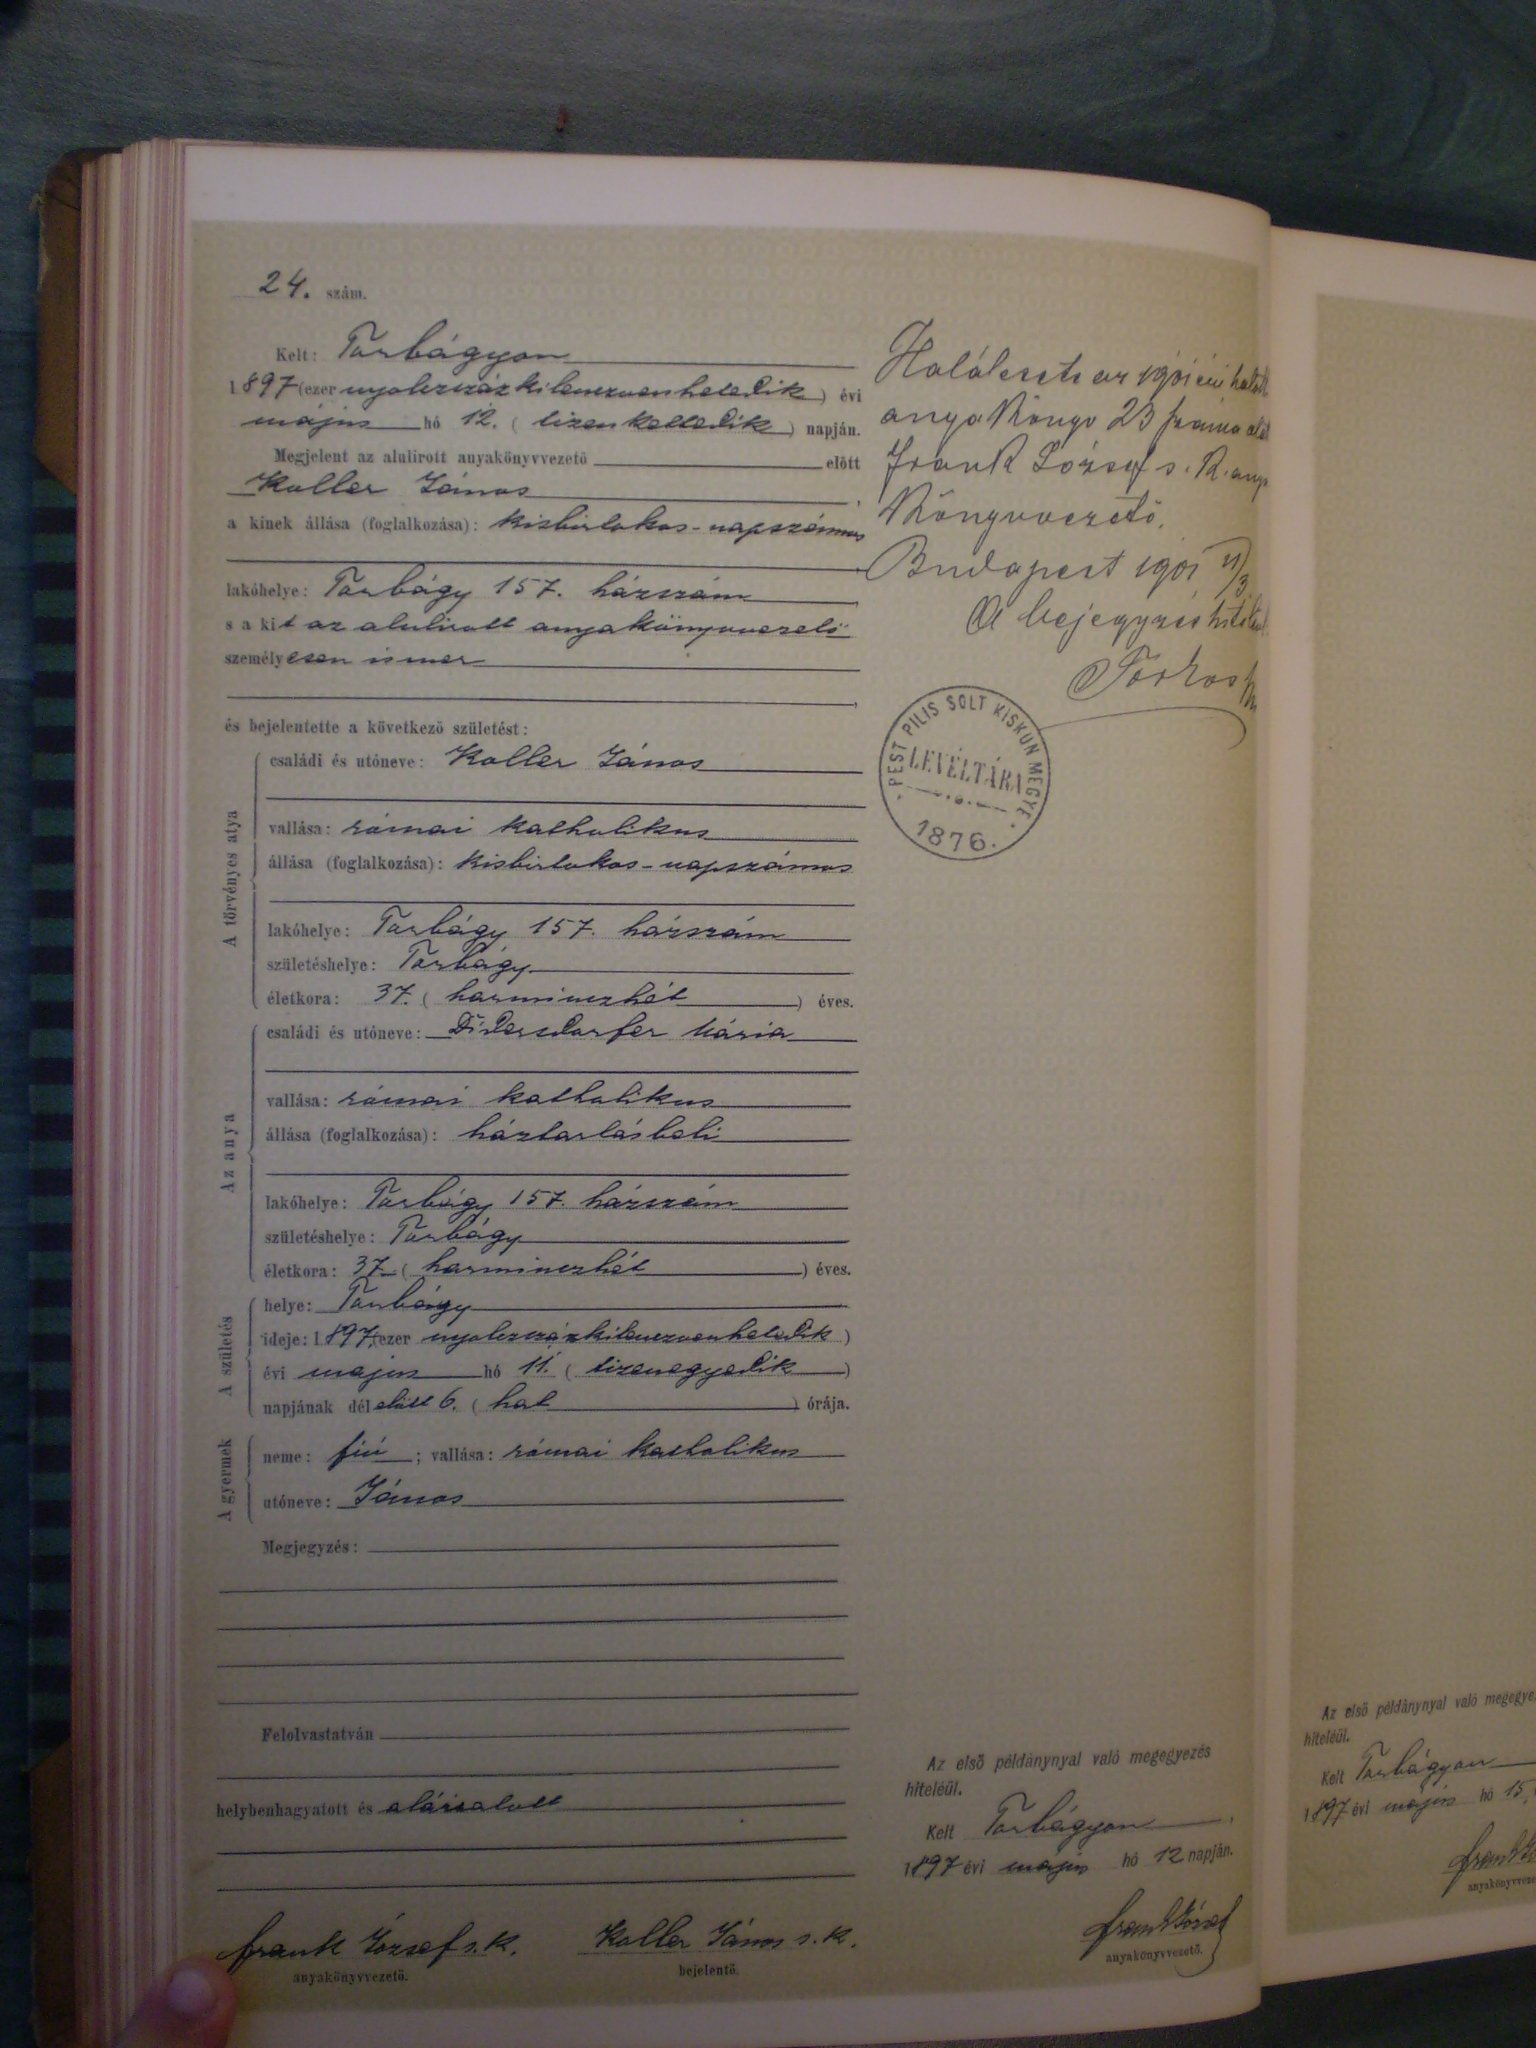 24. szám.
Kelt: Torbágyon
1897 (ezer nyolczszázkilenczvenhetedik) évi
május hó 12. (tizenkettedik) napján.
Megjelent az alulirott anyakönyvvezető előtt
Koller János
a kinek állása (foglalkozása): kisbirtokos-napszámos
lakóhelye: Torbágy 157. házszám
s a kit az alulirott anyakönyvvezető
személyesen ismer
és bejelentette a következő születést:
A törvényes atya
családi és utóneve: Koller János
vallása: római katholikus
állása (foglalkozása): kisbirtokos-napszámos
lakóhelye: Torbágy 157. házszám
születéshelye: Torbágy
életkora: 37. (harminczhét) éves.
Az anya
családi és utóneve: Mária
vallása: római katholikus
állása (foglalkozása): háztartásbeli
lakóhelye: Torbágy 157. házszám
születéshelye: Torbágy
életkora: 37. (harminczhét) éves.
A születés
helye: Torbágy
ideje: 1897. (ezer nyolczszázkilenczvenhetedik)
évi május hó 11. (tizenegyedik)
napjának dél előtt 6. (hat) órája.
A gyermek
neme: fiú; vallása: római katholikus
utóneve: János
Megjegyzés:
Felolvastatván
helybenhagyatott és aláiratott
Frank József s. k.
anyakönyvvezető.
Koller János s. k.
bejelentő.
Halálesete az 1901 évi
anyakönyv 23 száma alatt
Frank József s. k. anya
könyvvezető.
Budapest 1901
A bejegyzés
PEST PILIS SOLT KISKUN MEGYE
LEVÉLTÁRA
1876.
Az első példánynyal való megegyezés
hiteléül.
Kelt Torbágyon
1897 évi május hó 12 napján.
Frank József
anyakönyvvezető.
Az első példánynyal való
hiteléül.
Kelt Torbágyon
1897 évi május hó 15.